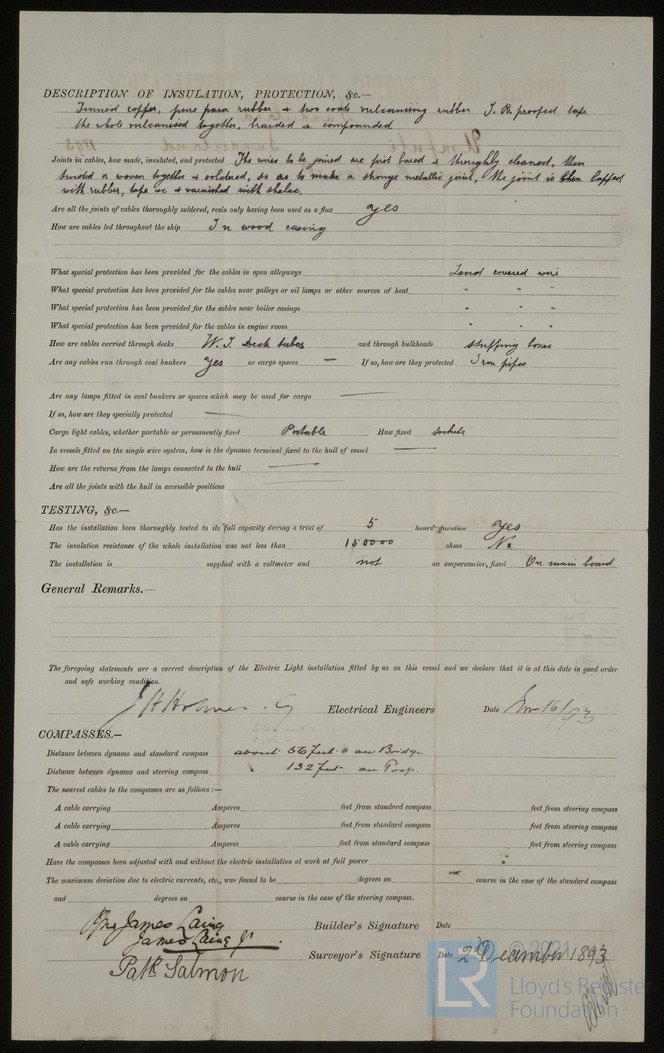 DESCRIPTION OF INSULATION, PROTECTION, &c.—
Tinned copper, pure para rubber & two coats vulcanising rubber I. R. proofed tape
the whole vulcanised together, braided & compounded
Joints in cables, how made, insulated, and protected The wires to be joined are first bared & thoroughly cleaned, then
twisted or woven together & soldered, so as to make a stronge metallic joint, the joint is then lapped
with rubber, tape &c & varnished with shelac.
Are all the joints of cables thoroughly soldered, resin only having been used as a flux yes
How are cables led throughout the ship In wood casing
What special protection has been provided for the cables in open alleyways Lead covered wire
What special protection has been provided for the cables near galleys or oil lamps or other sources of heat " " "
What special protection has been provided for the cables near boiler casings " " "
What special protection has been provided for the cables in engine room " " "
How are cables carried through decks W. I. Deck tubes and through bulkheads stuffing boxes
Are any cables run through coal bunkers yes or cargo spaces — If so, how are they protected Iron pipes
Are any lamps fitted in coal bunkers or spaces which may be used for cargo —
If so, how are they specially protected —
Cargo light cables, whether portable or permanently fixed Portable How fixed sockets
In vessels fitted on the single wire system, how is the dynamo terminal fixed to the hull of vessel —
How are the returns from the lamps connected to the hull —
Are all the joints with the hull in accessible positions —
TESTING, &c.—
Has the installation been thoroughly tested to its full capacity during a trial of 5 hours duration yes
The insulation resistance of the whole installation was not less than 150000 ohms No
The installation is supplied with a voltmeter and not an amperemeter, fixed On main board
General Remarks.—
The foregoing statements are a correct description of the Electric Light installation fitted by us on this vessel and we declare that it is at this date in good order
and safe working condition.
J H Holmes & Cy Electrical Engineers Date Nov 16/93
COMPASSES.—
Distance between dynamo and standard compass about 56 feet on Bridge
Distance between dynamo and steering compass " 132 feet on Poop.
The nearest cables to the compasses are as follows :—
A cable carrying Amperes feet from standard compass feet from steering compass
A cable carrying Amperes feet from standard compass feet from steering compass
A cable carrying Amperes feet from standard compass feet from steering compass
Have the compasses been adjusted with and without the electric installation at work at full power
The maximum deviation due to electric currents, etc., was found to be degrees on course in the case of the standard compass
and degrees on course in the case of the steering compass.
James Laing
James Laing Jr. Builder's Signature Date
Patk Salmon Surveyor's Signature Date 2d December 1893
© 2021
LR Lloyd's Register
Foundation